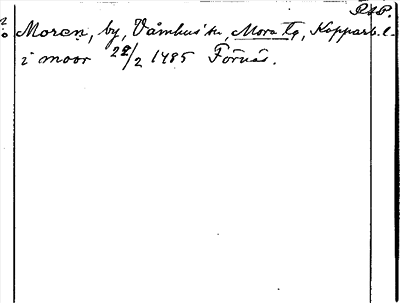 RAP.
Moren, by, Våmhus sn, Mora tg, Kopparb. l.
i moor 22/2 1485 Förnäs.